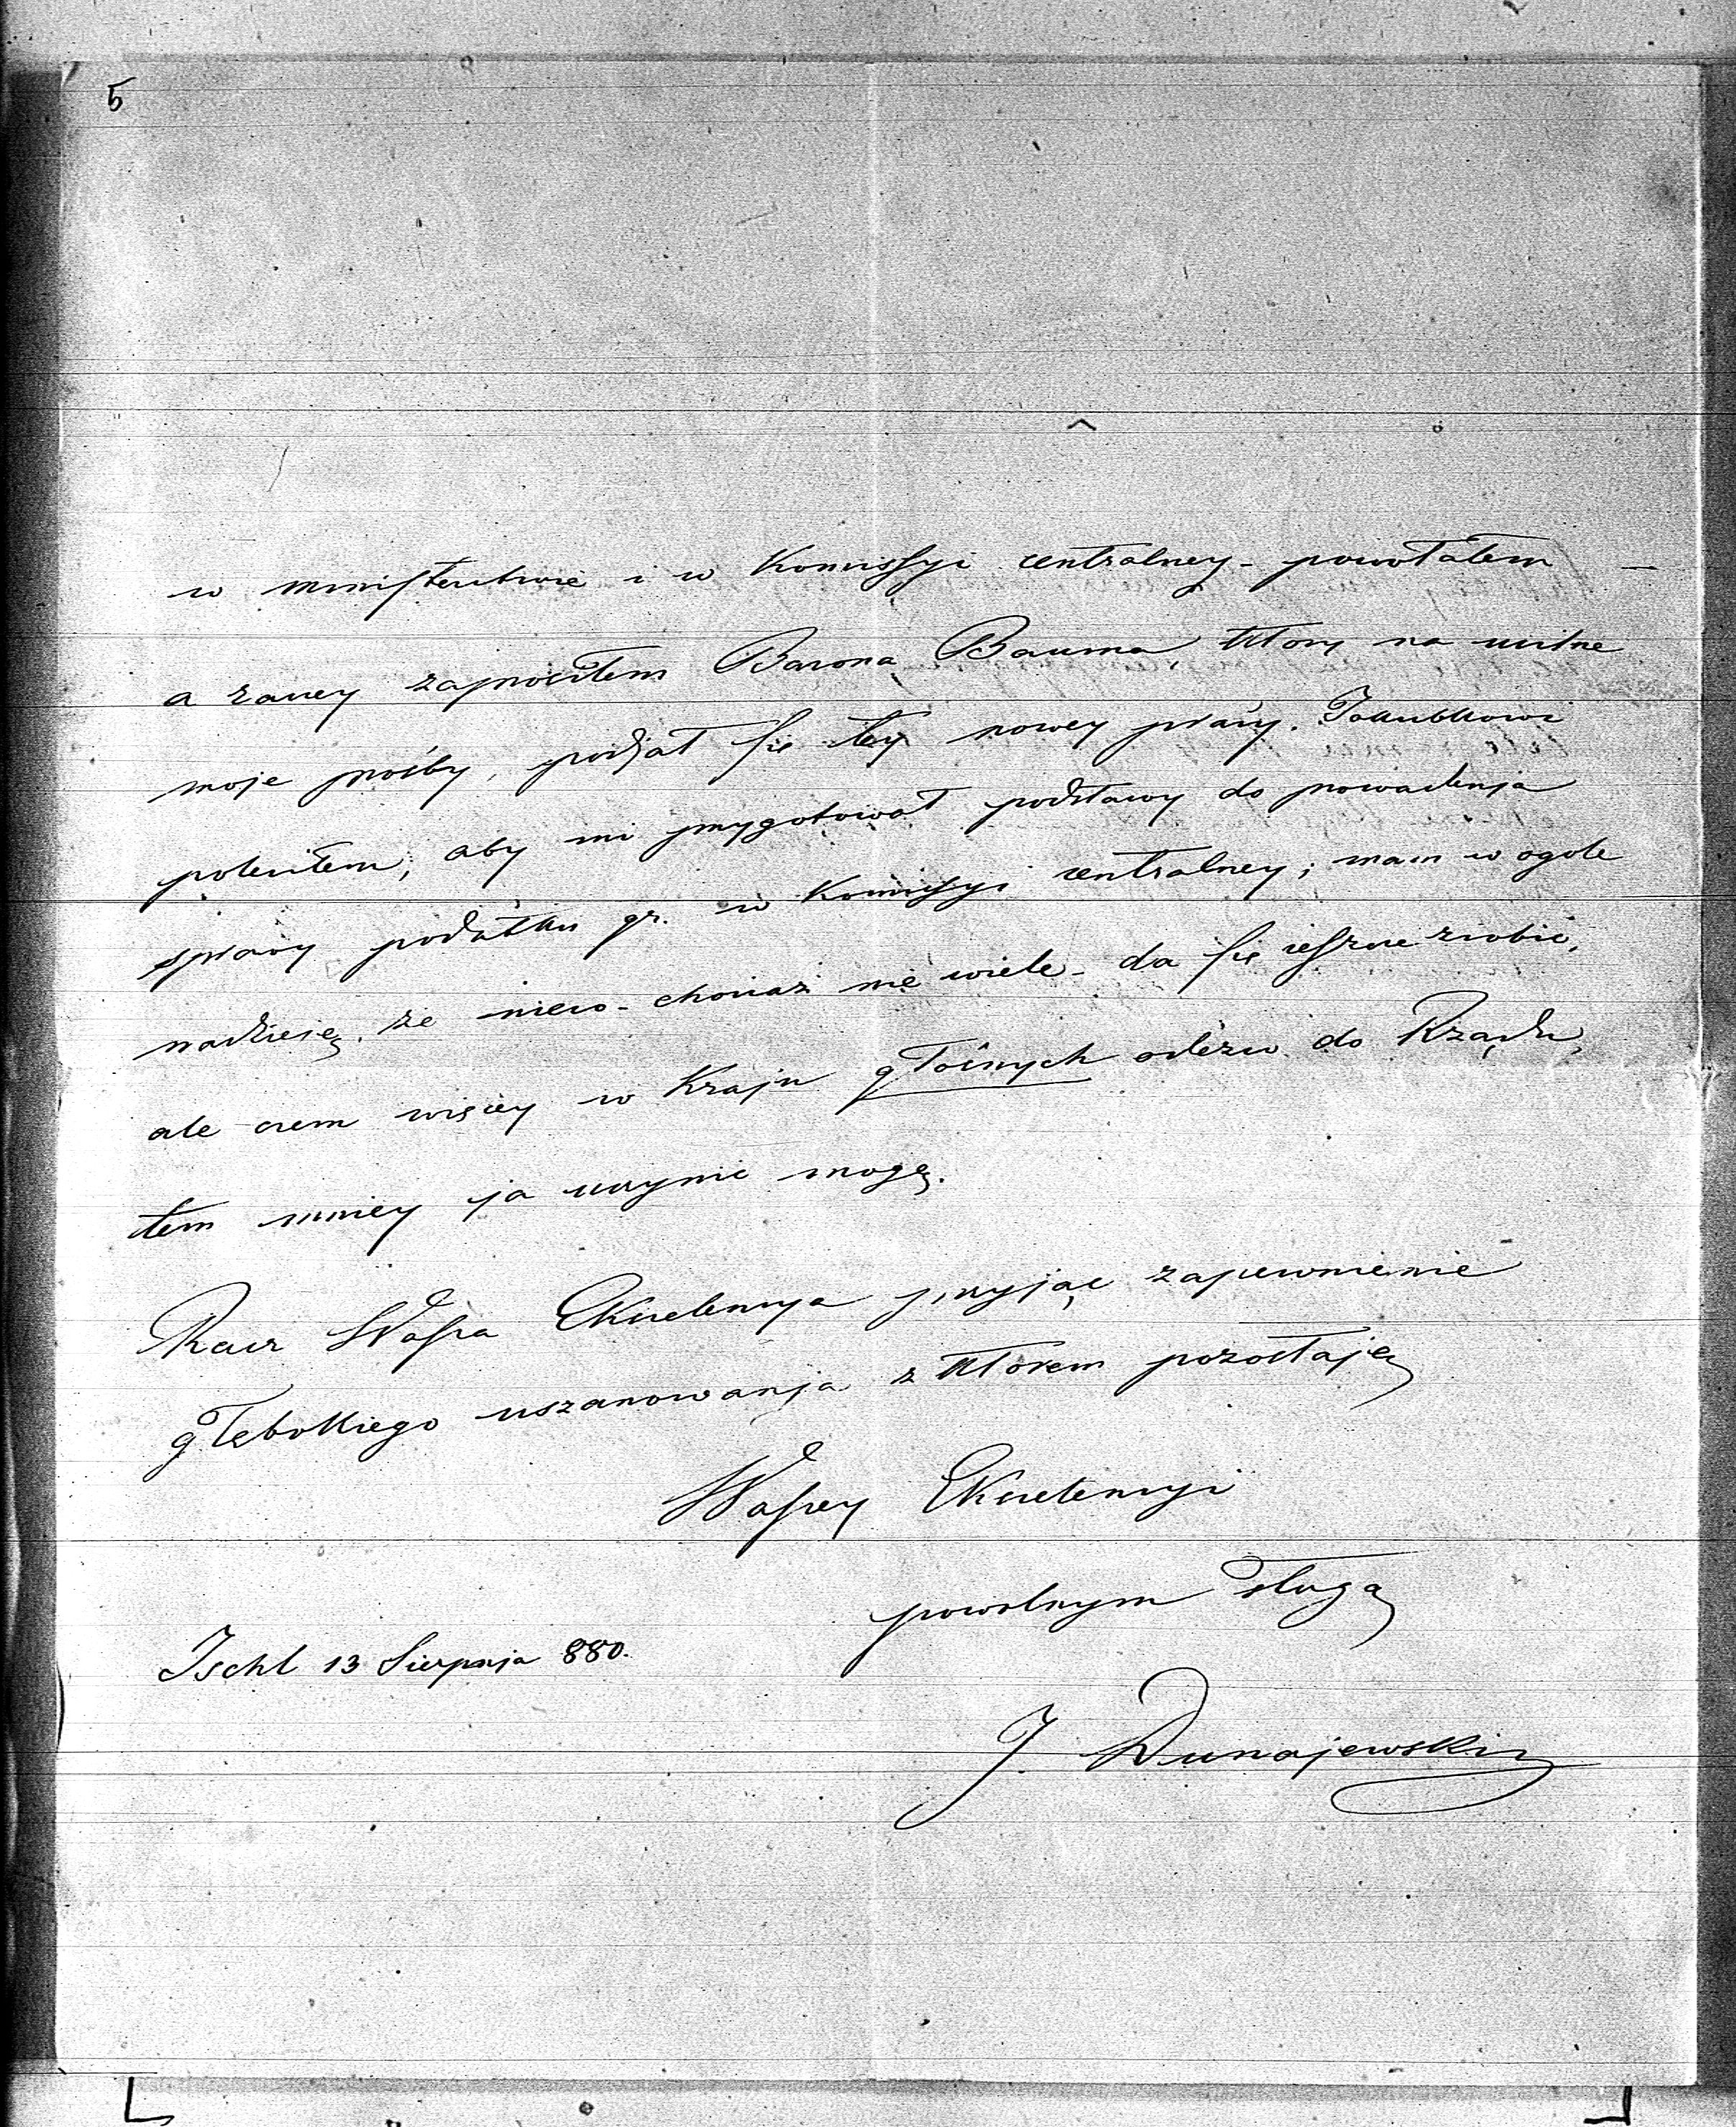 5
w ministerstwie i w Komissyi centralney - powołałem
a raczey zaprosiłem Barona Bauma, który na usilne
moje prośby, podjął się tey nowey pracy. Jakubkowi
poleciłem, aby mi przygotował podstawy do prowadzenia
sprawy podatku gr. w Komisyi centralney; mam w ogole
nadzieię, że nieco - chociaż nie wiele - da się ieszcze zrobić,
ale czem więcey w Kraju głośnych odezw do Rządu,
tem mniey ja uczynić mogę.
Racz Wasza Excelencya przyjąć zapewnienie
głębokiego uszanowanja z którem pozostaję
Waszey Excelencyi
powolnym sługą
Ischl 13 Sierpnja 880.
J. Dunajewski